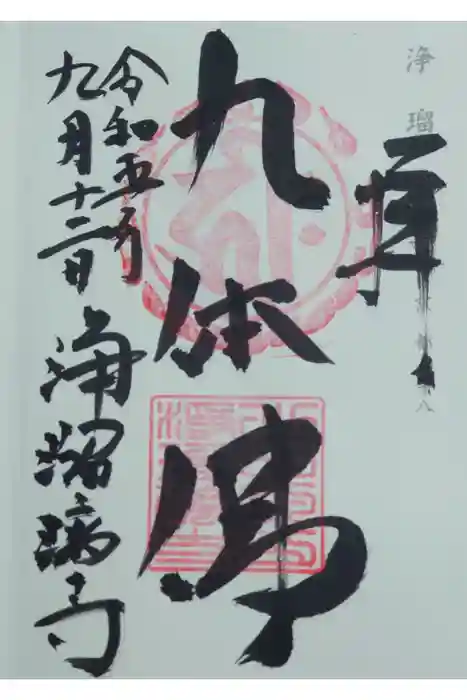 拝
九体佛
令和五年
九月十二日
浄瑠璃寺
浄瑠
八